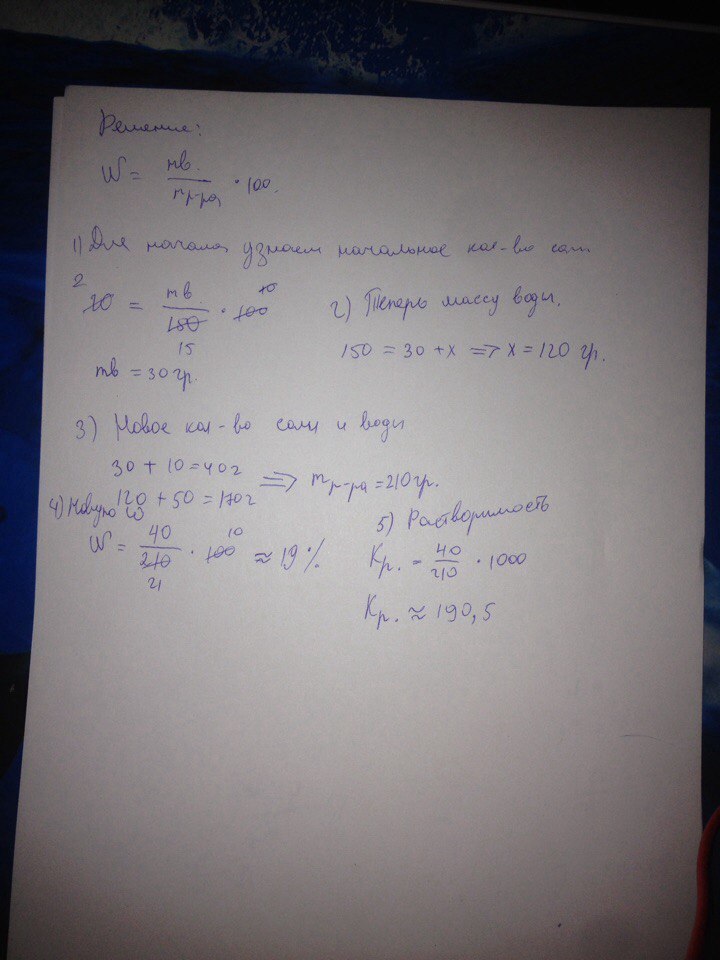 Решение:
W = mв. / mр-ра · 100.
1) Для начала узнаем начальное кол-во соли
2 20 = mв / 150 15 · 100 10
mв = 30 гр.
2) Теперь массу воды.
150 = 30 + x => x = 120 гр.
3) Новое кол-во соли и воды
30 + 10 = 40 г
120 + 50 = 170 г => mр-ра = 210 гр.
4) Новую ω
W = 40 / 210 21 · 100 10 ≈ 19 %
5) Растворимость
Kр. = 40 / 210 · 1000
Kр. ≈ 190,5